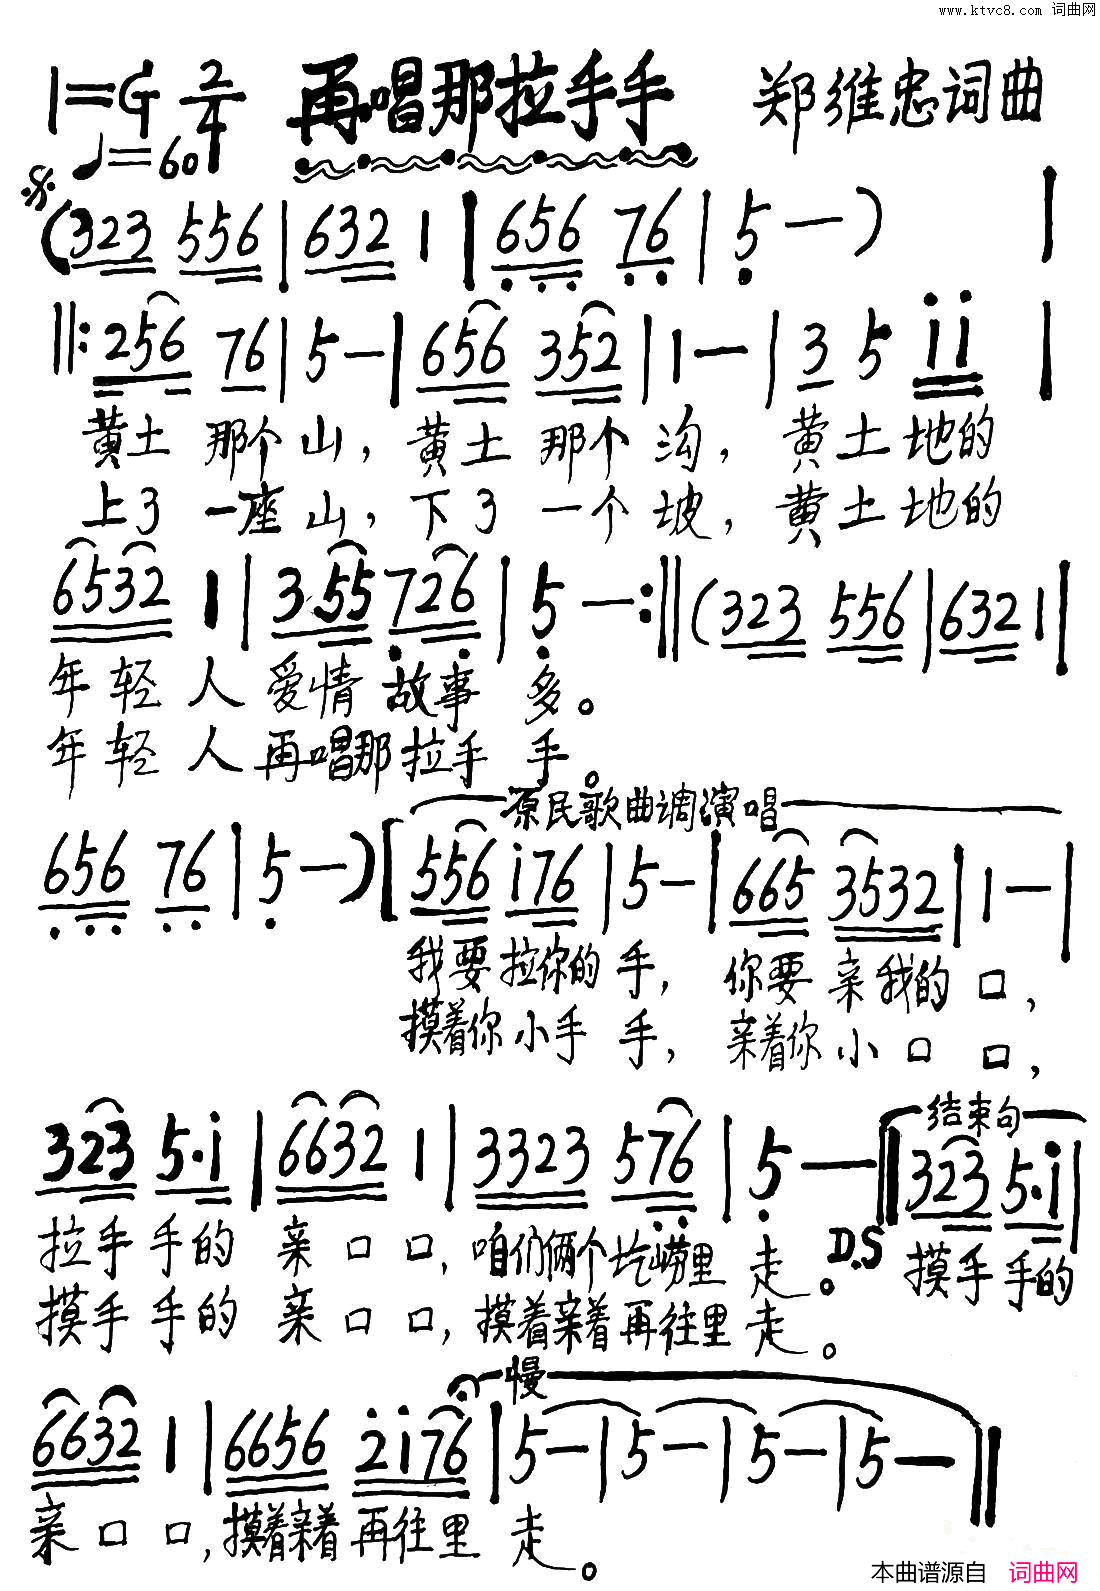 www.ktvc8.com 词曲网
1=G 2/4 再唱那拉手手 郑维忠词曲
♩=60
(323 556 | 632 1 | 656 76 | 5 — ) |
‖: 256 76 | 5 — | 656 352 | 1 — | 3 5 ii |
黄土 那个山，黄土 那个 沟， 黄土地的
上了 一座山，下了 一个坡，黄土地的
6532 1 | 3.55 726 | 5 — :‖ (323 556 | 632 1 |
年轻人 爱情 故事 多。
年轻人 再唱那拉手 手。
原民歌曲调演唱
656 76 | 5 — ) [ 556 i76 | 5 — | 665 3532 | 1 — |
我要拉你的 手， 你要 亲我的 口，
摸着你小手 手， 亲着你小口 口，
结束句
323 5.i | 6632 1 | 3323 576 | 5 — ‖ 323 5.i |
拉手手的 亲口口，咱们俩个圪崂里 走。 D.S 摸手手的
摸手手的 亲口口，摸着亲着再往里 走。
慢
6632 1 | 6656 2i76 | 5 — | 5 — | 5 — | 5 — ‖
亲口口，摸着亲着 再往里 走。
本曲谱源自 词曲网